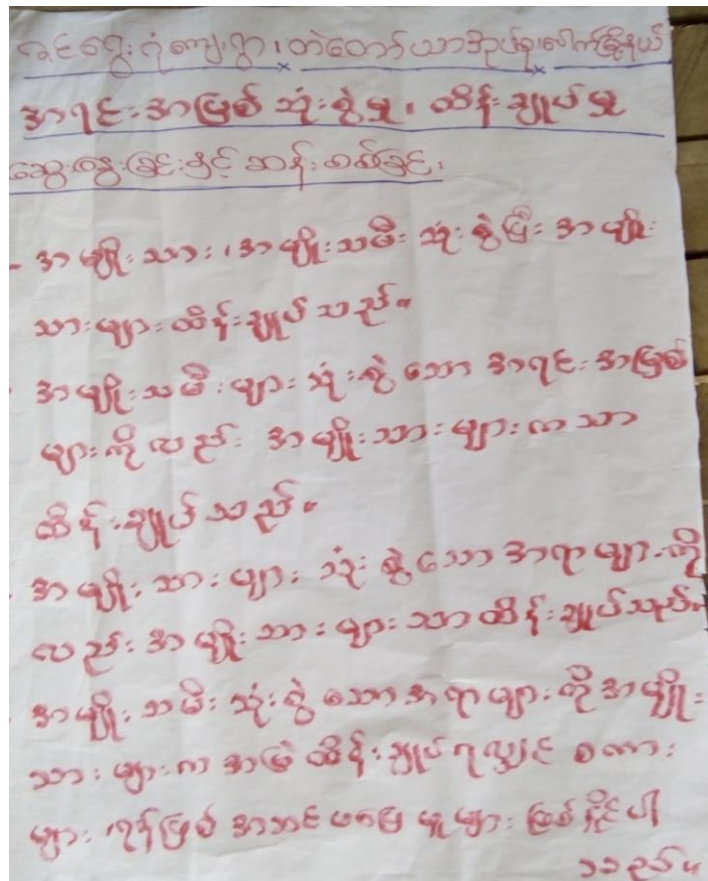 ရင်ရွေးဂုံကျေးရွာ၊ တဲတော်ယာအုပ်စု၊ ပေါက်မြို့နယ်
အရင်းအမြစ် သုံးစွဲမှု၊ ထိန်းချုပ်မှု
ဆွေးနွေးခြင်းနှင့် ဆန်းစစ်ခြင်း၊
- အမျိုးသား၊ အမျိုးသမီး သုံးစွဲပြီး အမျိုး
သားများ ထိန်းချုပ်သည်။
- အမျိုးသမီးများ သုံးစွဲသော အရင်းအမြစ်
များကိုလည်း အမျိုးသားများကသာ
ထိန်းချုပ်သည်။
- အမျိုးသားများ သုံးစွဲသော အရာများကို
လည်း အမျိုးသားများသာ ထိန်းချုပ်သည်။
- အမျိုးသမီးသုံးစွဲသော အရာများကို အမျိုး
သားများက အမြဲ ထိန်းချုပ်ရလျှင် စကား
များ ရန်ဖြစ် အဆင်မပြေမှုများ ဖြစ်နိုင်ပါ
သည်။